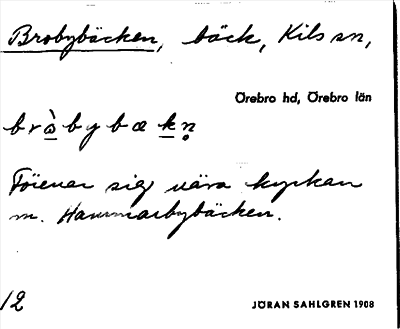 Brobybäcken, bäck, Kils sn,
Örebro hd, Örebro län
bròbybækn̥
Förenar sig nära kyrkan
m. Hammarbybäcken.
12
JÖRAN SAHLGREN 1908